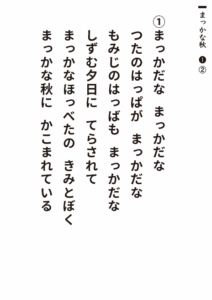 まっかな秋 ❶②
①まっかだな　まっかだな
つたのはっぱが　まっかだな
もみじのはっぱも　まっかだな
しずむ夕日に　てらされて
まっかなほっぺたの　きみとぼく
まっかな秋に　かこまれている